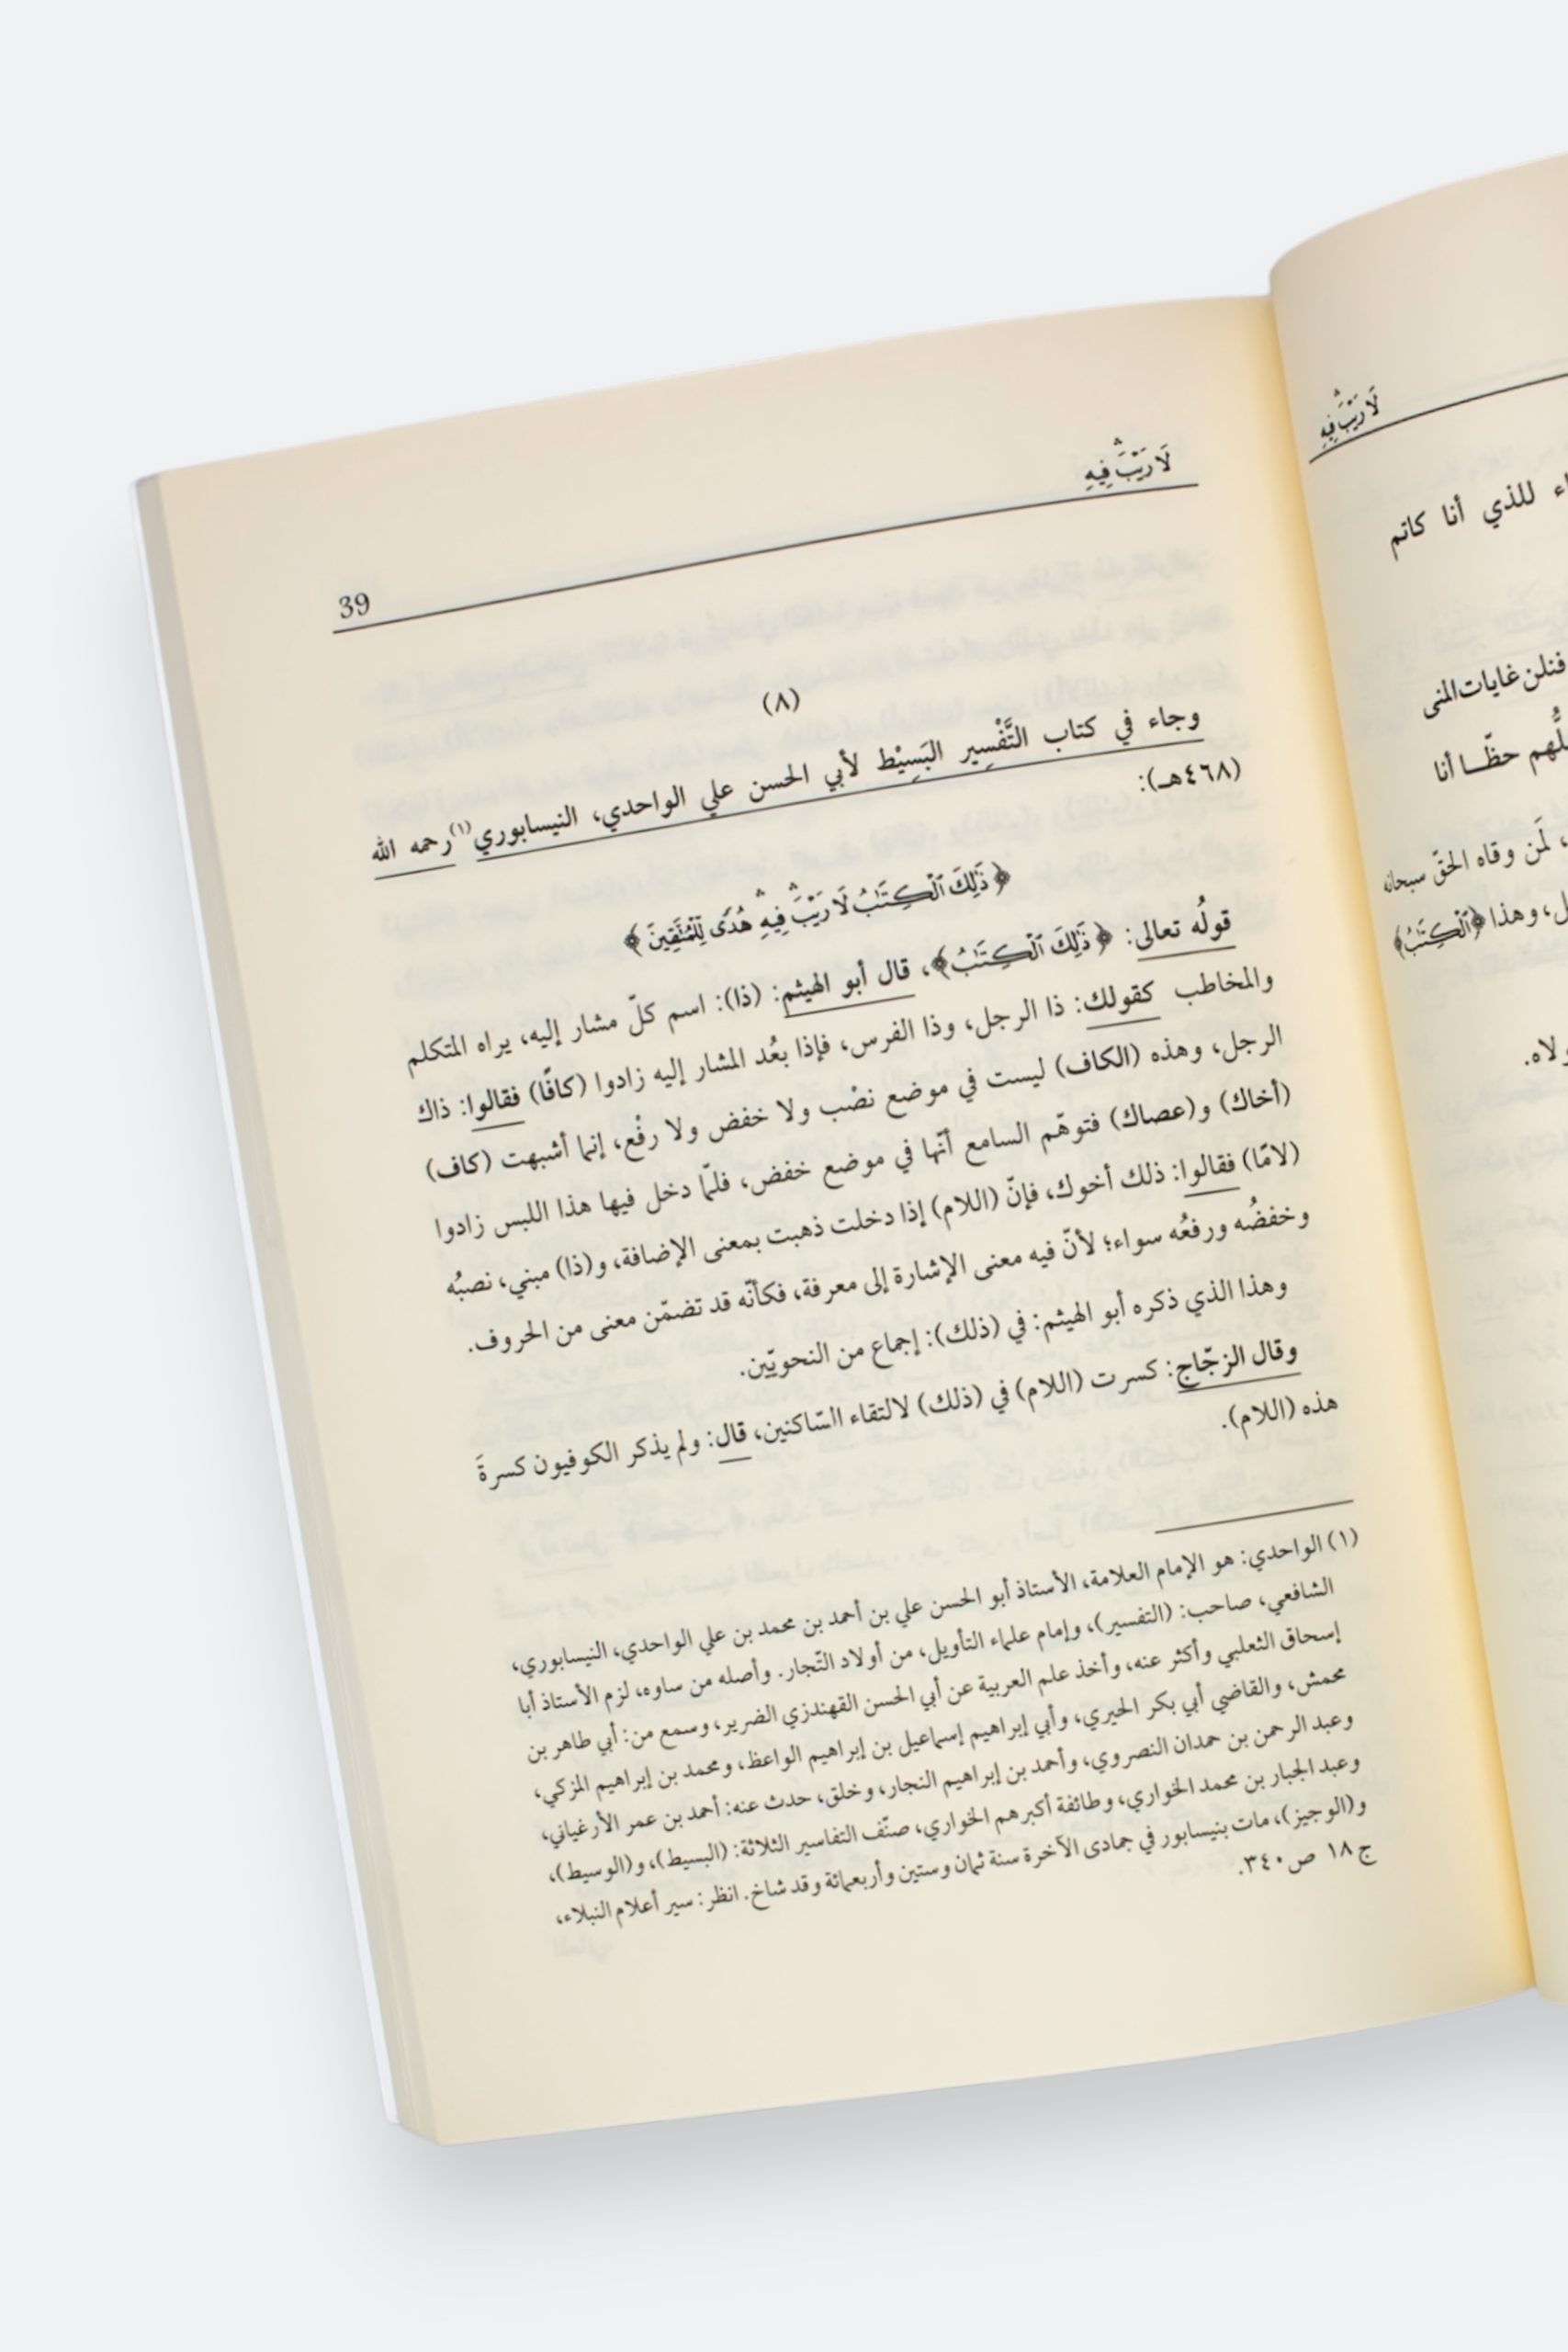 لَا رَيْبَۛ فِيهِ
39
(٨)
وجاء في كتاب التَّفْسِير البَسِيْط لأبي الحسن علي الواحدي، النيسابوري(١) رحمه الله
(٤٦٨هـ):
﴿ذَٰلِكَ ٱلْكِتَٰبُ لَا رَيْبَۛ فِيهِۛ هُدًى لِّلْمُتَّقِينَ﴾
قولُه تعالى: ﴿ذَٰلِكَ ٱلْكِتَٰبُ﴾، قال أبو الهيثم: (ذا): اسم كلّ مشار إليه، يراه المتكلم
والمخاطب كقولك: ذا الرجل، وذا الفرس، فإذا بعُد المشار إليه زادوا (كافًا) فقالوا: ذاك
الرجل، وهذه (الكاف) ليست في موضع نصْب ولا خفض ولا رفْع، إنما أشبهت (كاف)
(أخاك) و(عصاك) فتوهّم السامع أنّها في موضع خفض، فلمّا دخل فيها هذا اللبس زادوا
(لامًا) فقالوا: ذلك أخوك، فإنّ (اللام) إذا دخلت ذهبت بمعنى الإضافة، و(ذا) مبني، نصبُه
وخفضُه ورفعُه سواء؛ لأنّ فيه معنى الإشارة إلى معرفة، فكأنّه قد تضمّن معنى من الحروف.
وهذا الذي ذكره أبو الهيثم: في (ذلك): إجماع من النحويّين.
وقال الزجّاج: كسرت (اللام) في (ذلك) لالتقاء االسّاكنين، قال: ولم يذكر الكوفيون كسرةَ
هذه (اللام).
(١) الواحدي: هو الإمام العلامة، الأستاذ أبو الحسن علي بن أحمد بن محمد بن علي الواحدي، النيسابوري،
الشافعي، صاحب: (التفسير)، وإمام علماء التأويل، من أولاد التّجار. وأصله من ساوه، لزم الأستاذ أبا
إسحاق الثعلبي وأكثر عنه، وأخذ علم العربية عن أبي الحسن القهندزي الضرير، وسمع من: أبي طاهر بن
محمش، والقاضي أبي بكر الحيري، وأبي إبراهيم إسماعيل بن إبراهيم الواعظ، ومحمد بن إبراهيم المزكي،
وعبد الرحمن بن حمدان النصروي، وأحمد بن إبراهيم النجار، وخلق، حدث عنه: أحمد بن عمر الأرغياني،
وعبد الجبار بن محمد الخواري، وطائفة أكبرهم الخواري، صنّف التفاسير الثلاثة: (البسيط)، و(الوسيط)،
و(الوجيز)، مات بنيسابور في جمادى الآخرة سنة ثمان وستين وأربعمائة وقد شاخ. انظر: سير أعلام النبلاء،
ج ١٨ ص ٣٤٠.
لَا رَيْبَۛ فِيهِ
للذي أنا كاتم
فنلن غايات المنى
حظّـــا أنا
لَمن وقاه الحقّ سبحانه
وهذا ﴿ٱلْكِتَٰبُ﴾